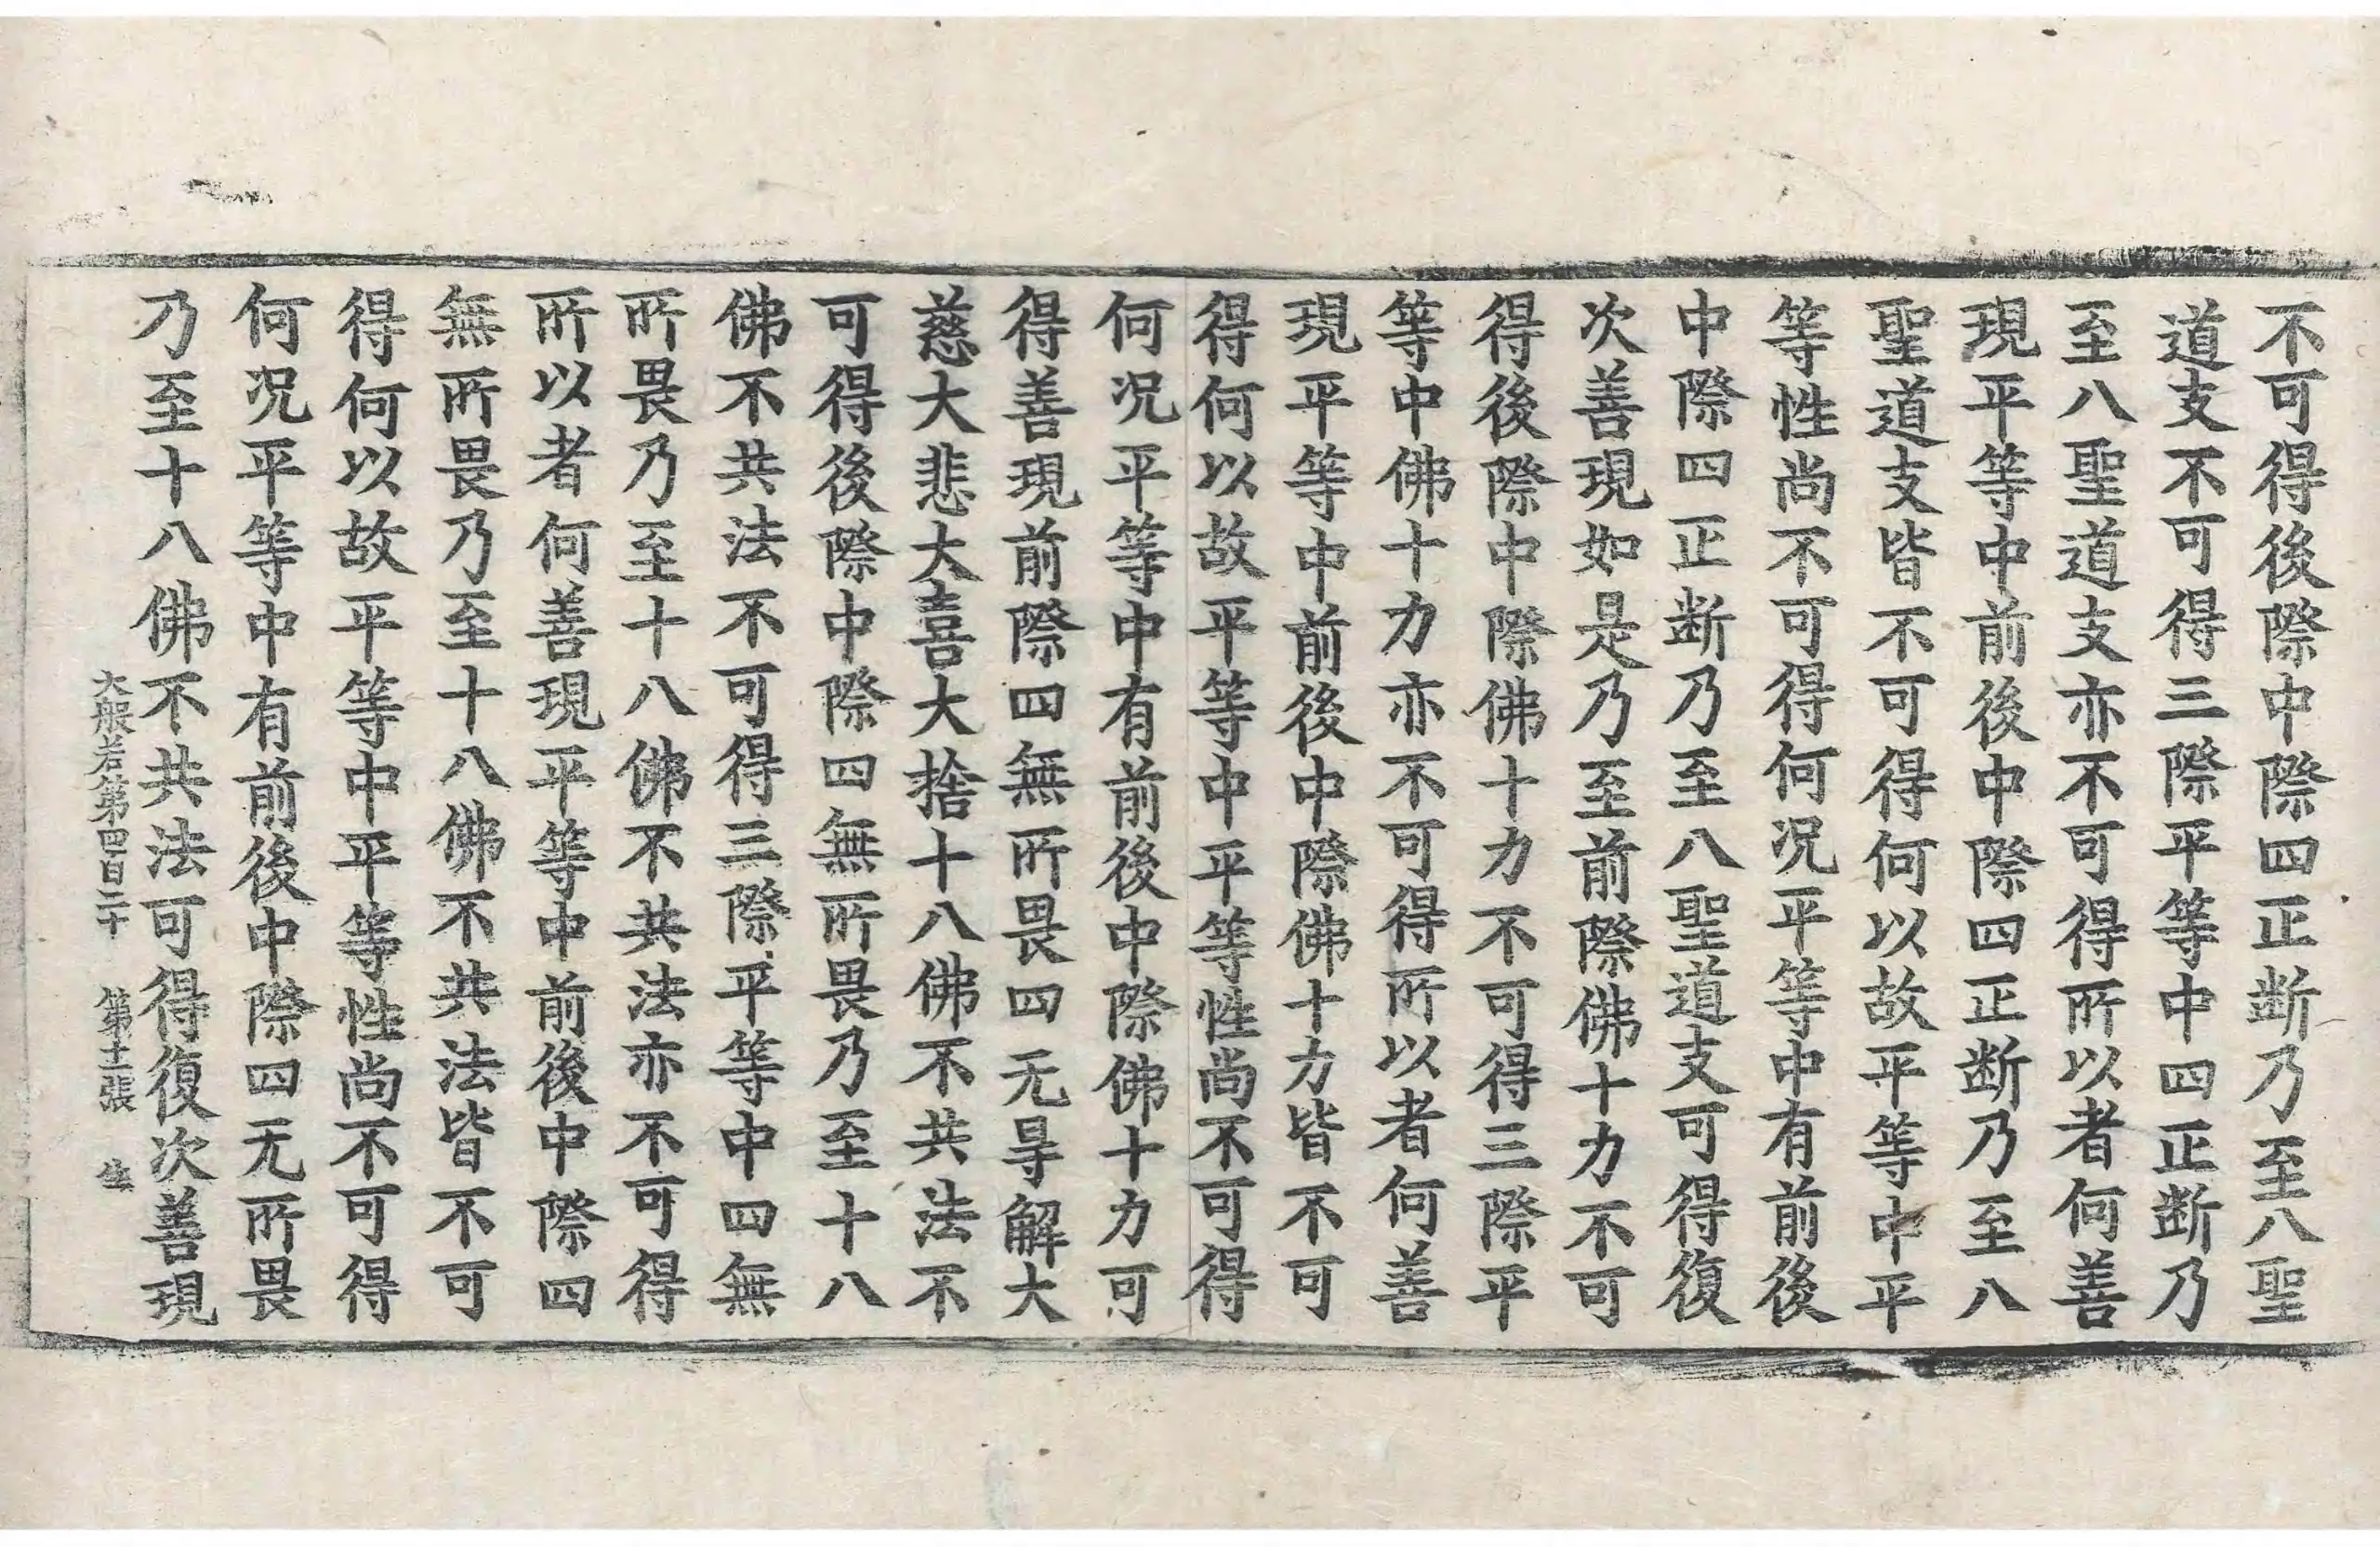 不可得後際中際四正断乃至八聖
道支不可得三際平等中四正断乃
至八聖道支亦不可得所以者何善
現平等中前後中際四正断乃至八
聖道支皆不可得何以故平等中平
等性尚不可得何况平等中有前後
中際四正断乃至八聖道支可得復
次善現如是乃至前際佛十力不可
得後際中際佛十力不可得三際平
等中佛十力亦不可得所以者何善
現平等中前後中際佛十力皆不可
得何以故平等中平等性尚不可得
何况平等中有前後中際佛十力可
得善現前際四無所畏四无㝵解大
慈大悲大喜大捨十八佛不共法不
可得後際中際四無所畏乃至十八
佛不共法不可得三際平等中四無
所畏乃至十八佛不共法亦不可得
所以者何善現平等中前後中際四
無所畏乃至十八佛不共法皆不可
得何以故平等中平等性尚不可得
何况平等中有前後中際四无所畏
乃至十八佛不共法可得復次善現
大般若第四百二十 第十二張